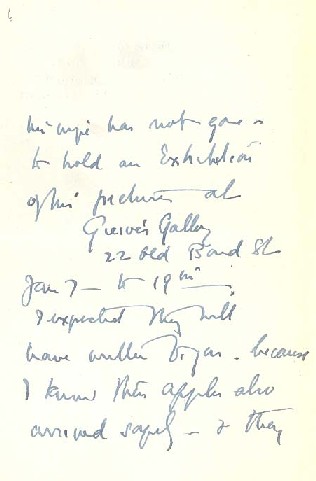 his wife has not gone –
to hold an Exhibition
of his pictures at
Grieves Gallery
22 Old Bond St
Jan 7 – to 19th
I expected they will
have written by you – because
I know their apples also
arrived safely – & they